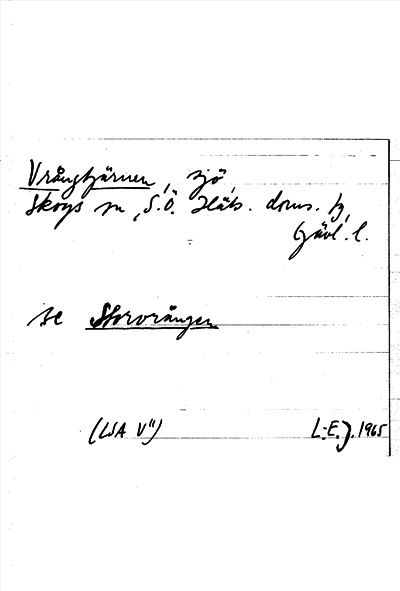 Vrångtjärnen, sjö,
Skogs sn, S.Ö. Häls. doms. h,
Gävl. l.
se Storvrången
(LSA V")
L-E.J. 1965